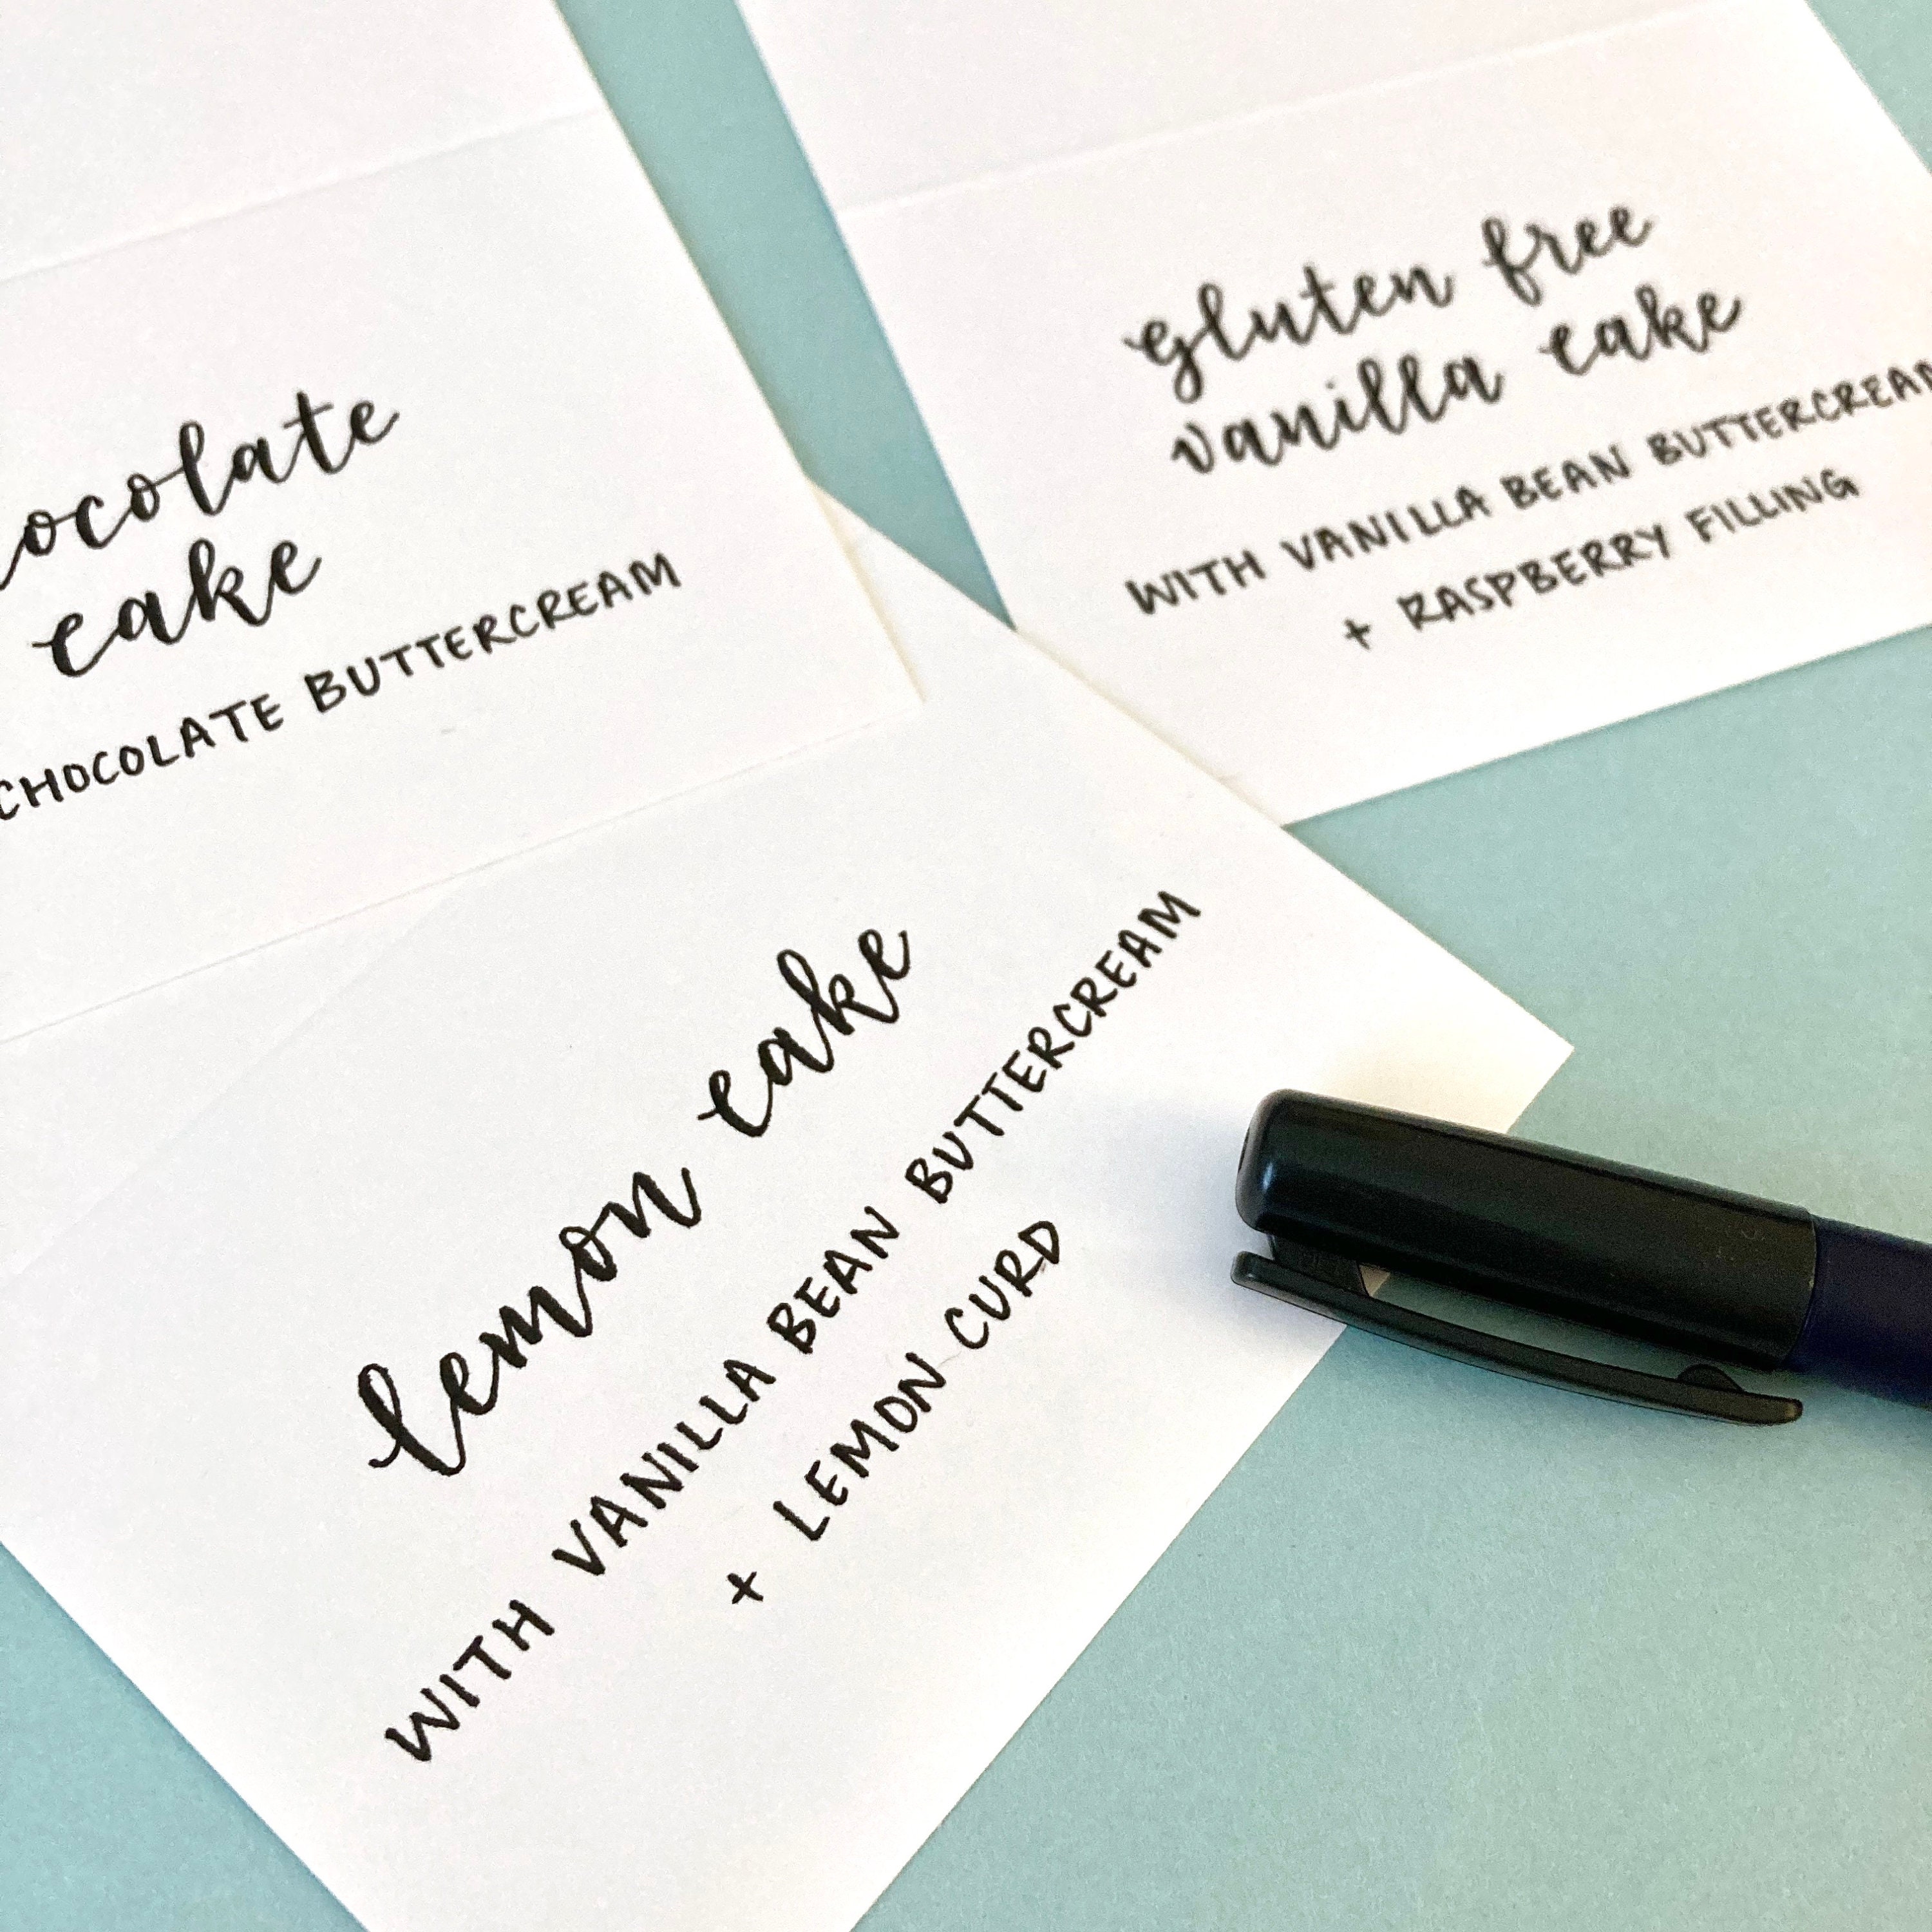 ocolate
cake
CHOCOLATE BUTTERCREAM
gluten free
vanilla cake
WITH VANILLA BEAN BUTTERCREAM
+ RASPBERRY FILLING
lemon cake
WITH VANILLA BEAN BUTTERCREAM
+ LEMON CURD